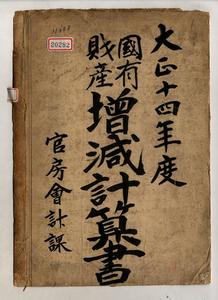 大正十四年度
國有財産
增減計算書
官房會計課
20282